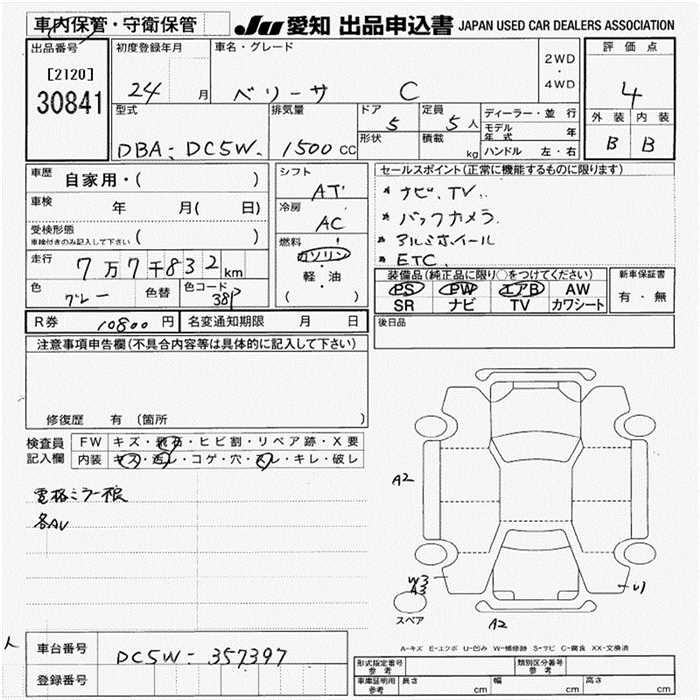 車内保管・守衛保管
JU 愛知 出品申込書 JAPAN USED CAR DEALERS ASSOCIATION
出品番号
[2120]
30841
初度登録年月
24 月
車名・グレード
ベリーサ C
2WD
・
4WD
評価点
4
外装 内装
B B
型式
DBA-DC5W
排気量
1500 CC
ドア
5
形状
定員
5 人
積載
kg
ディーラー・並行
モデル年式 年
ハンドル 左・右
車歴 自家用・( )
車検 年 月( 日)
受検形態
車検付きのみ記入して下さい ( )
走行 7万7千832 km
色 グレー 色替 色コード 38P
シフト
AT
冷房
AC
燃料
ガソリン
軽・油
( )
セールスポイント(正常に機能するものに限ります)
ナビ、TV
バックカメラ
アルミホイール
ETC
装備品(純正品に限り○をつけてください)
PS PW エアB AW
SR ナビ TV カワシート
新車保証書
有・無
R券 10800 円 名変通知期限 月 日
後日品
注意事項申告欄(不具合内容等は具体的に記入して下さい)
修復歴 有 (箇所 )
検査員
記入欄
FW キズ・飛石・ヒビ割・リペア跡・X要
内装 キズ・汚レ・コゲ・穴・スレ・キレ・破レ
電格ミラー根
各AU
A2
W3
A3
スペア
U1
A2
A-キズ E-エクボ U-凹み W-補修跡 S-サビ C-腐食 XX-交換済
車台番号 DC5W-357397
登録番号
形式指定番号
参考
類別区分番号
参考
車庫証明用
参考
長さ cm 幅 cm 高さ cm